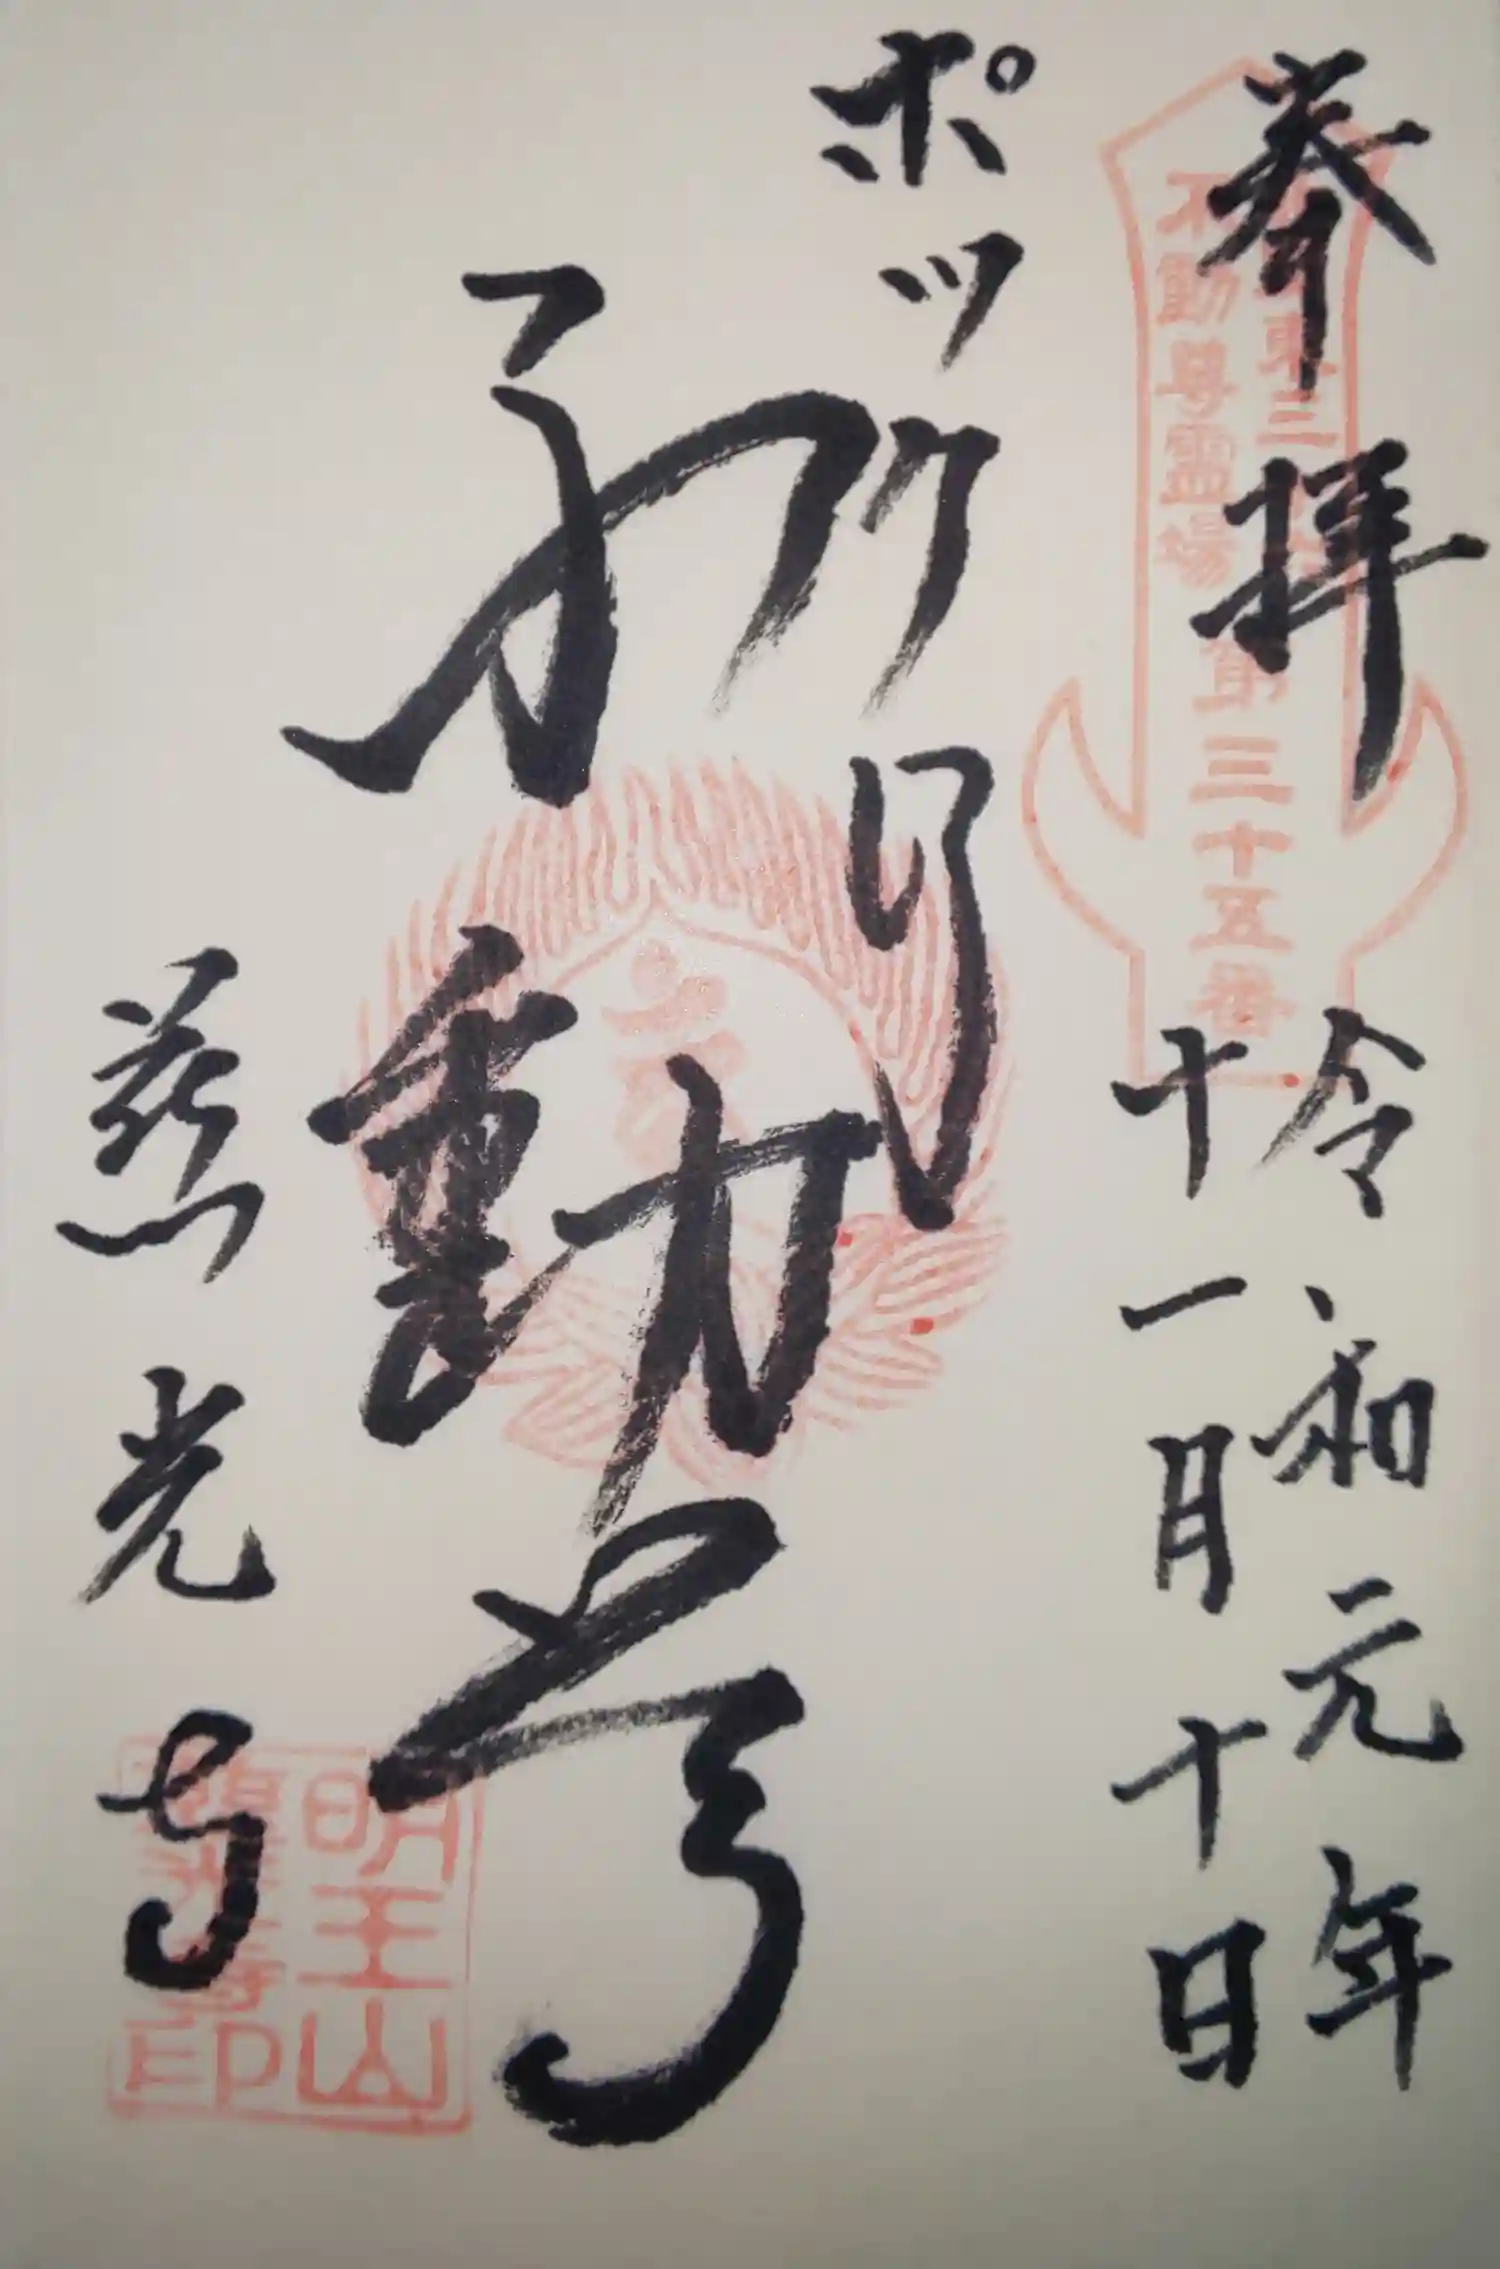 奉拝
東三
不動尊霊場
第三十五番
令和元年
十一月十日
ポックリ
不動尊
慈光寺
明王山
慈光寺印